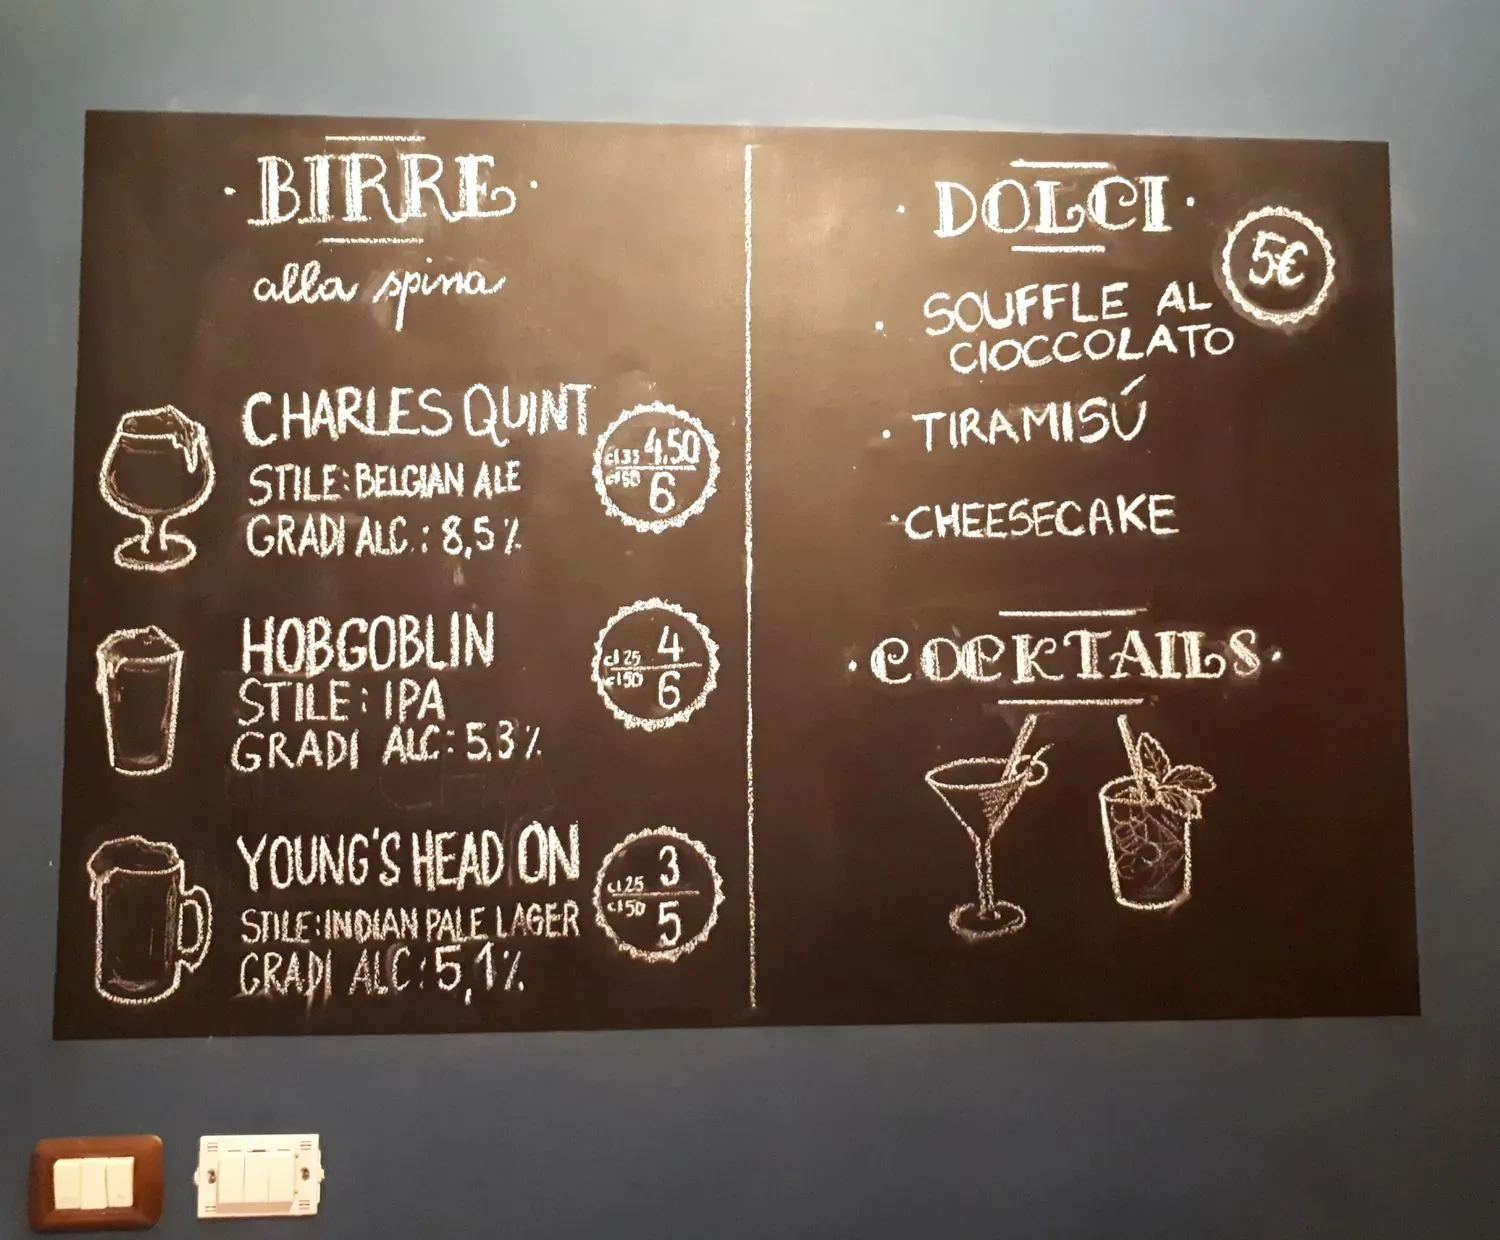 BIRRE
alla spina
CHARLES QUINT
STILE: BELGIAN ALE
GRADI ALC.: 8,5%
cl.33 4,50
cl50 6
HOBGOBLIN
STILE: IPA
GRADI ALC: 5,3%
cl 25 4
cl50 6
YOUNG'S HEAD ON
STILE: INDIAN PALE LAGER
GRADI ALC: 5,1%
cl 25 3
cl50 5
DOLCI
5€
• SOUFFLE AL
CIOCCOLATO
• TIRAMISÚ
• CHEESECAKE
COCKTAILS